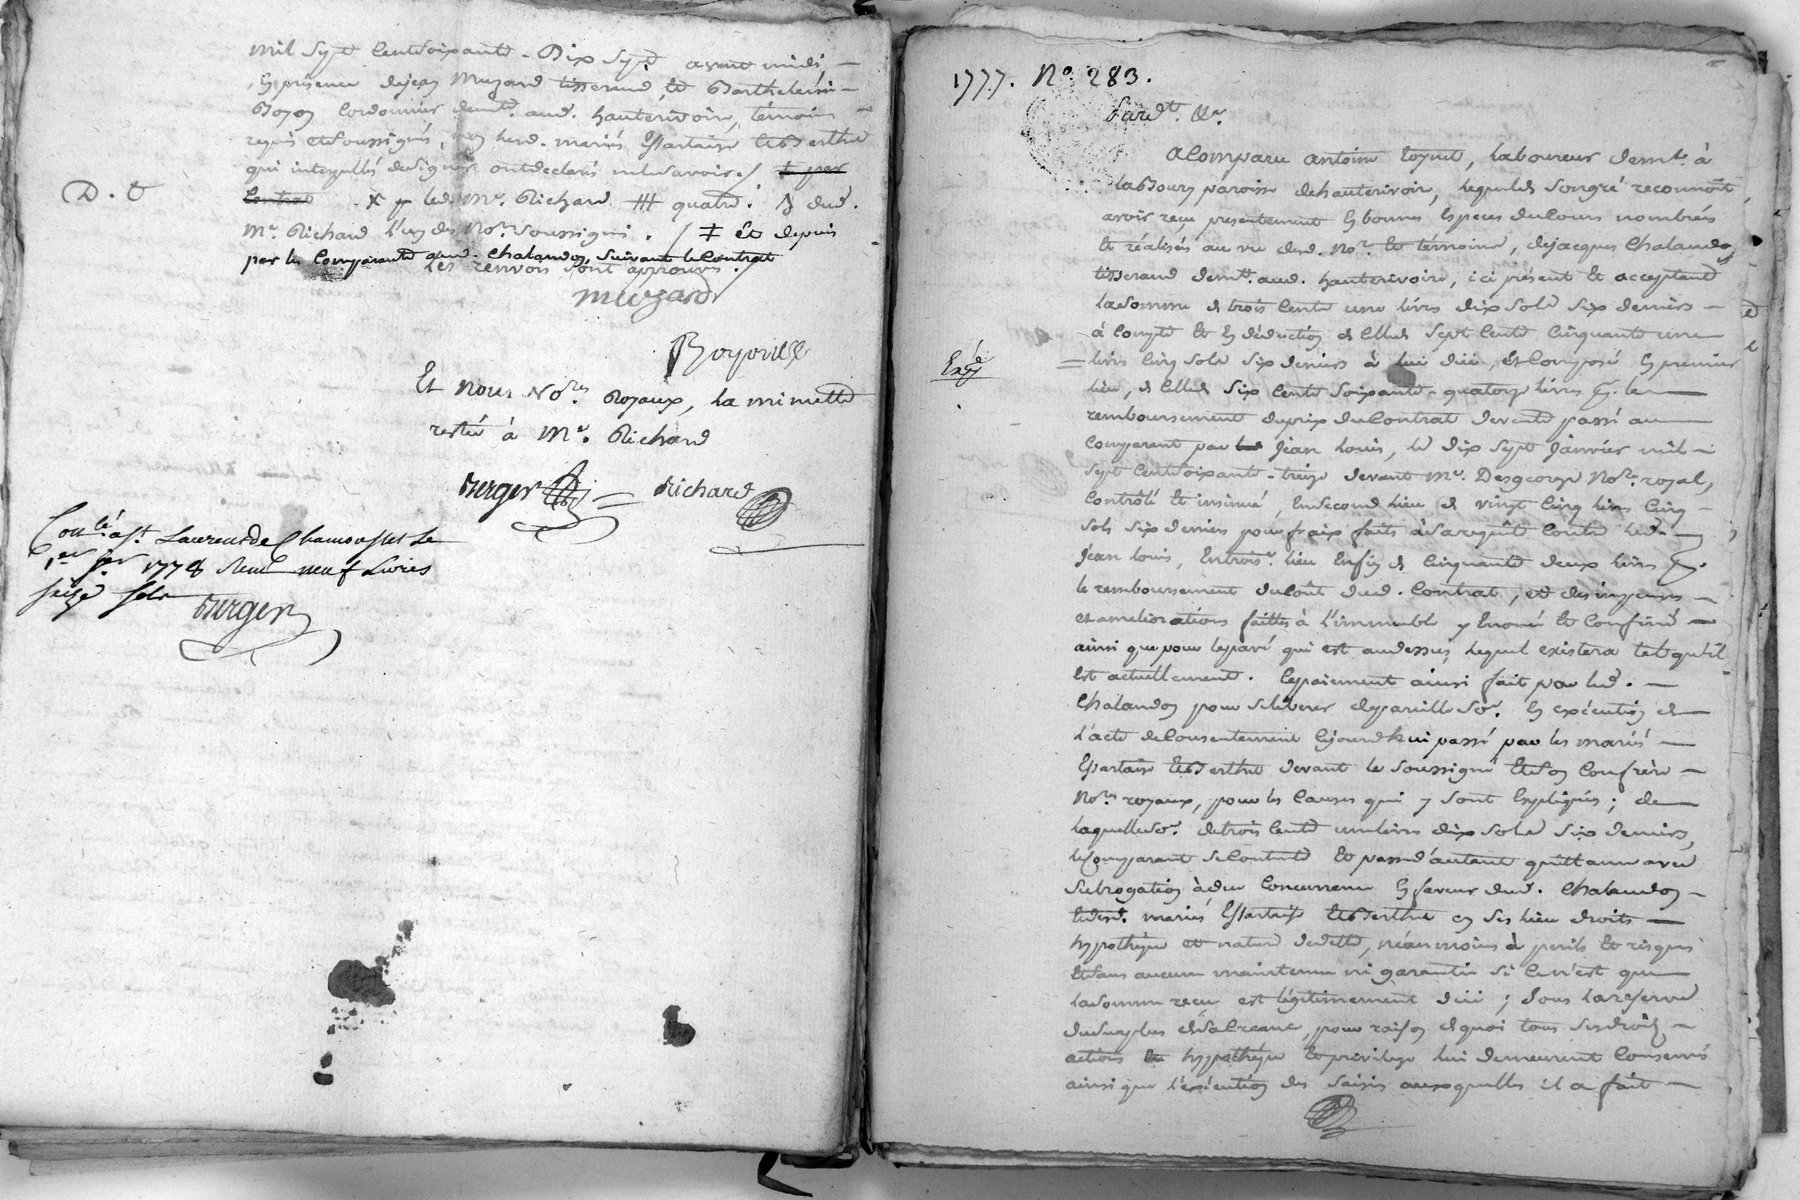 mil sept cent soixante - Dix sept avant midi -
En présence de jean Muzard tisserand, et Barthelémi -
Boyon Cordonnier demt. aud. hauterivoire, témoins -
requis et soussignés, non lesd. mariés Essartaise et Berthet
qui interpellés de signer ont declarés ne le savoir /
D. t
x led. Me. Richard quatre. dud.
Me. Richard l'un des Nores. soussignés. / ‡ et depuis
par le Comparant aud. Chalandon, suivant le Contrat
les renvois sont approuvés. /
Muzard
Boyon
Et nous Nores. Royaux, la minutte
restée à Me. Richard
Berger Richard
Conlé. à St. Laurent de Chamousset le
1er jer 1778 neuf Livres
seize sols
Berger
1777. No. 283.
Pardt. &c.
A Comparu antoine, laboureur demt. à
la paroisse de hauterivoire, lequel de son gré reconnoit
avoir reçu presentement En bonnes Especes du Cours nombrées
Et réalisés au vu dud. Nore. Et témoins, de jacques Chalandon
tisserand demt. aud. hauterivoire, ici présent Et acceptant
la somme de trois Cents une livres dix sols six deniers -
à Compte Et En déduction de Celle de Sept Cents Cinquante une
Exéé
livres Cinq sols six deniers à lui düe, Et Composée En premier
lieu, de Celle de Six Cents soixante - quatorze livres pr. le
remboursement du prix du Contrat de vente passé au
Comparant par Jean Louis, le dix sept Janvier mil -
Sept Cent soixante - treize devant Me. Desgeorge Nore. royal,
Contrôlé Et insinué, En second lieu de vingt Cinq livres Cinq -
sols six deniers pour fraix faits à sa requête Contre led. -
Jean Louis, En trois. lieu Enfin de Cinquante deux livres pr.
le remboursement du Coût dud. Contrat, et des impenses -
et améliorations faittes à l'immeuble y Enoncé Et Confiné -
ainsi que pour le pavé qui est au dessus, lequel existera tel qu'il
Est actuellement. Ce paiement ainsi fait par led. -
Chalandon pour se liberer de pareille So. En exécution de
l'acte de Consentement Cejourd'hui passé par les mariés -
Essartaise Et Berthet devant le soussigné Et son Confrère -
Nores. royaux, pour les Causes qui y sont Expliqués ; de
laquelle So. de trois Cents une livres dix sols six deniers,
le Comparant se Contente Et passe d'autant quittance avec
Subrogation à due Concurrence En faveur dud. Chalandon -
Et desd. mariés Essartaise Et Berthet en ses lieu droits -
hypothèque et nature de dette, néanmoins à perils Et risques
Et sans aucune maintenue ni garantie si Ce n'est que
la somme reçue est légitimement düe ; sous la reserve
du surplus de sa Creance, pour raison de quoi tous ses droits -
actions hypothéque Et privilege lui demeurent Conservés
ainsi que l'exécution des saisies auxquelles il a fait -